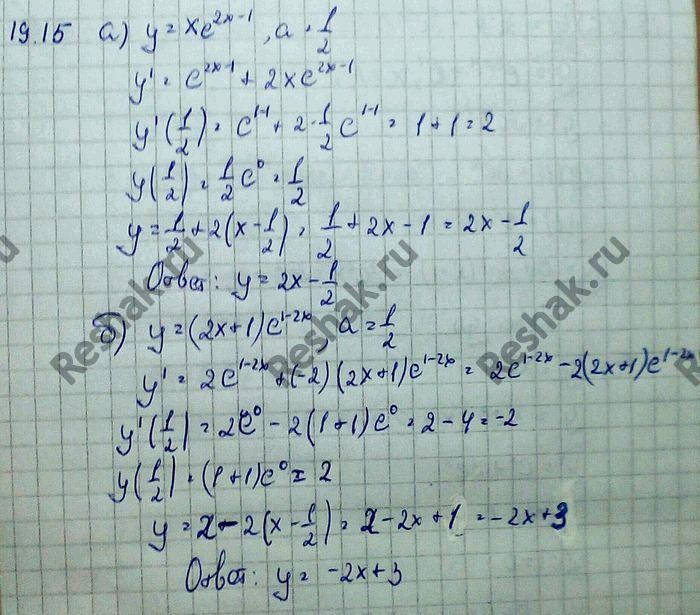 19.15 а) y = xe^(2x-1), a = 1/2
y' = e^(2x-1) + 2xe^(2x-1)
y'(1/2) = e^(1-1) + 2·1/2 e^(1-1) = 1+1=2
y(1/2) = 1/2 e^0 = 1/2
y = 1/2 + 2(x-1/2) = 1/2 + 2x - 1 = 2x - 1/2
Ответ: y = 2x - 1/2
б) y = (2x+1)e^(1-2x), a = 1/2
y' = 2e^(1-2x) + (-2)(2x+1)e^(1-2x) = 2e^(1-2x) - 2(2x+1)e^(1-2x)
y'(1/2) = 2e^0 - 2(1+1)e^0 = 2-4=-2
y(1/2) = (1+1)e^0 = 2
y = 2 - 2(x - 1/2) = 2 - 2x + 1 = -2x+3
Ответ: y = -2x+3
Reshak.ru
Reshak.ru
Reshak.ru